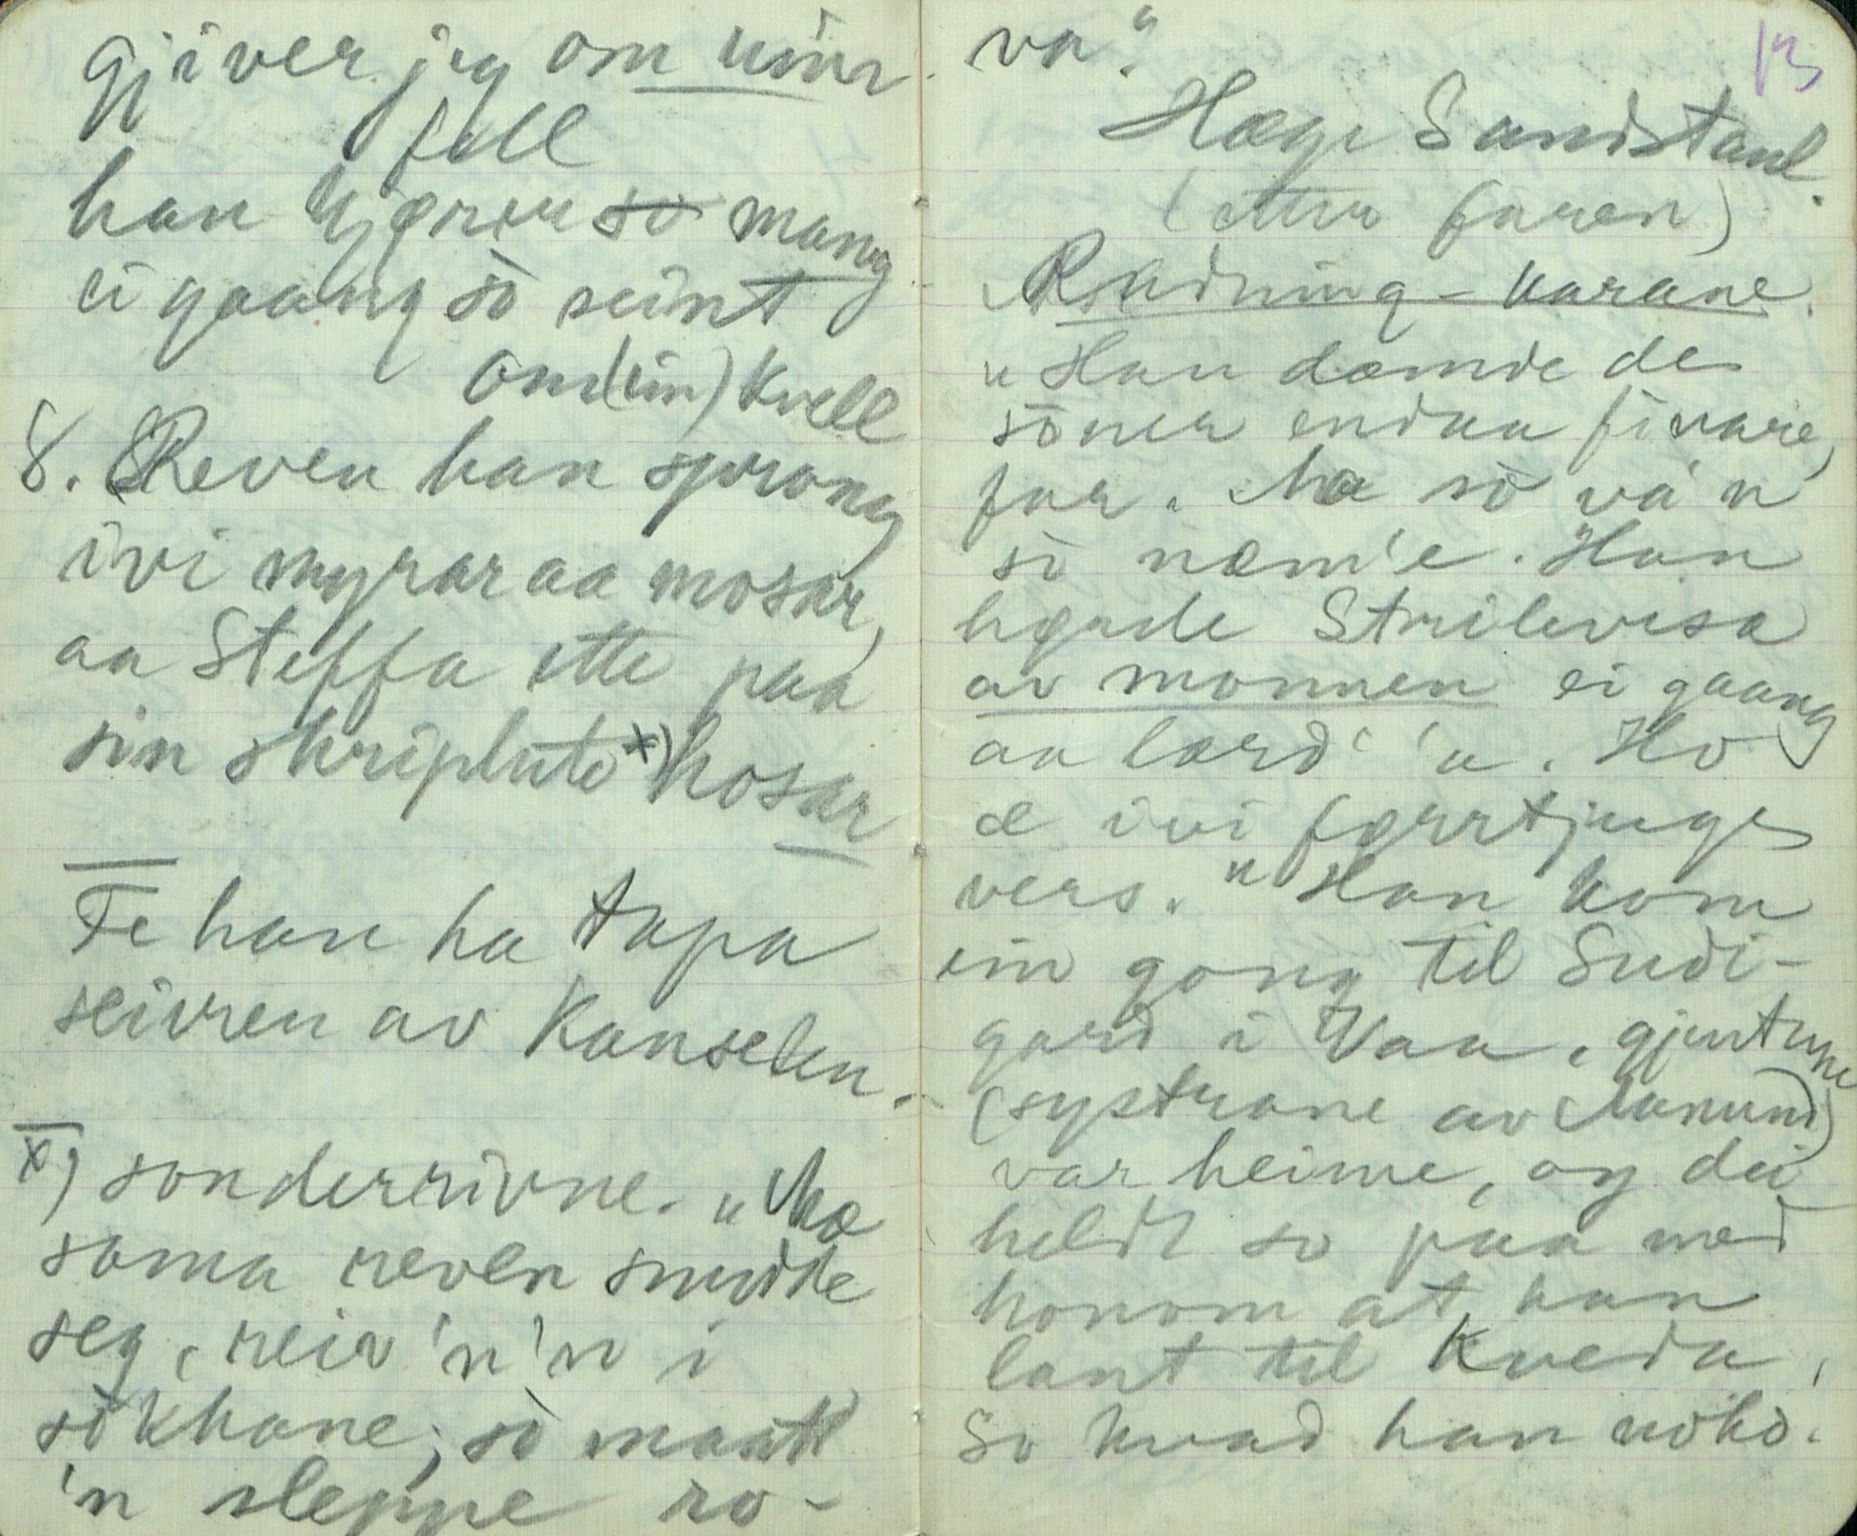 gjiver jeg om min
fell
han kjører so mang
ei gaang sò seint
om (ein) kvell
8. Reven han sprong
ivi myrar aa mosar,
aa Steffa ette paa
sin skriplute x) hosar
Fe han ha tapa
seivren av Kanselen.
x) sonderrivne. "Mæ
sama reven snudde
seg, reiv 'n 'n i
sokkane, sò maatt
'n sleppe ro-
va."
13
Hæge Sandstaul.
(etter faren)
Rudning-karane.
"Han dømde dei
sòner endaa fivare,
far. Mæ sò va 'n
sò næm'e. Han
høyrde Strilevisa
av monnen ei gaang
aa lærd' 'a. Ho
æ ivi førrtjuge
vers." Han kom
ein gong til Sudi-
gard i Vaa, gjentune
(systrane av Aanund)
var heime, og dei
heldt so paa med
honom at han
lant til kveda,
So kvad han noko.